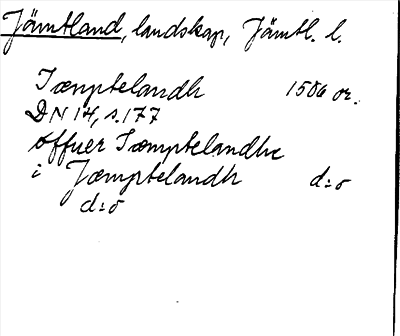 Jämtland, landskap, Jämtl. l.
Jæmptelandh 1506 or.
DN 14, s. 177
offuer Jæmptelandhe
i Jæmptelandh d:o
d:o